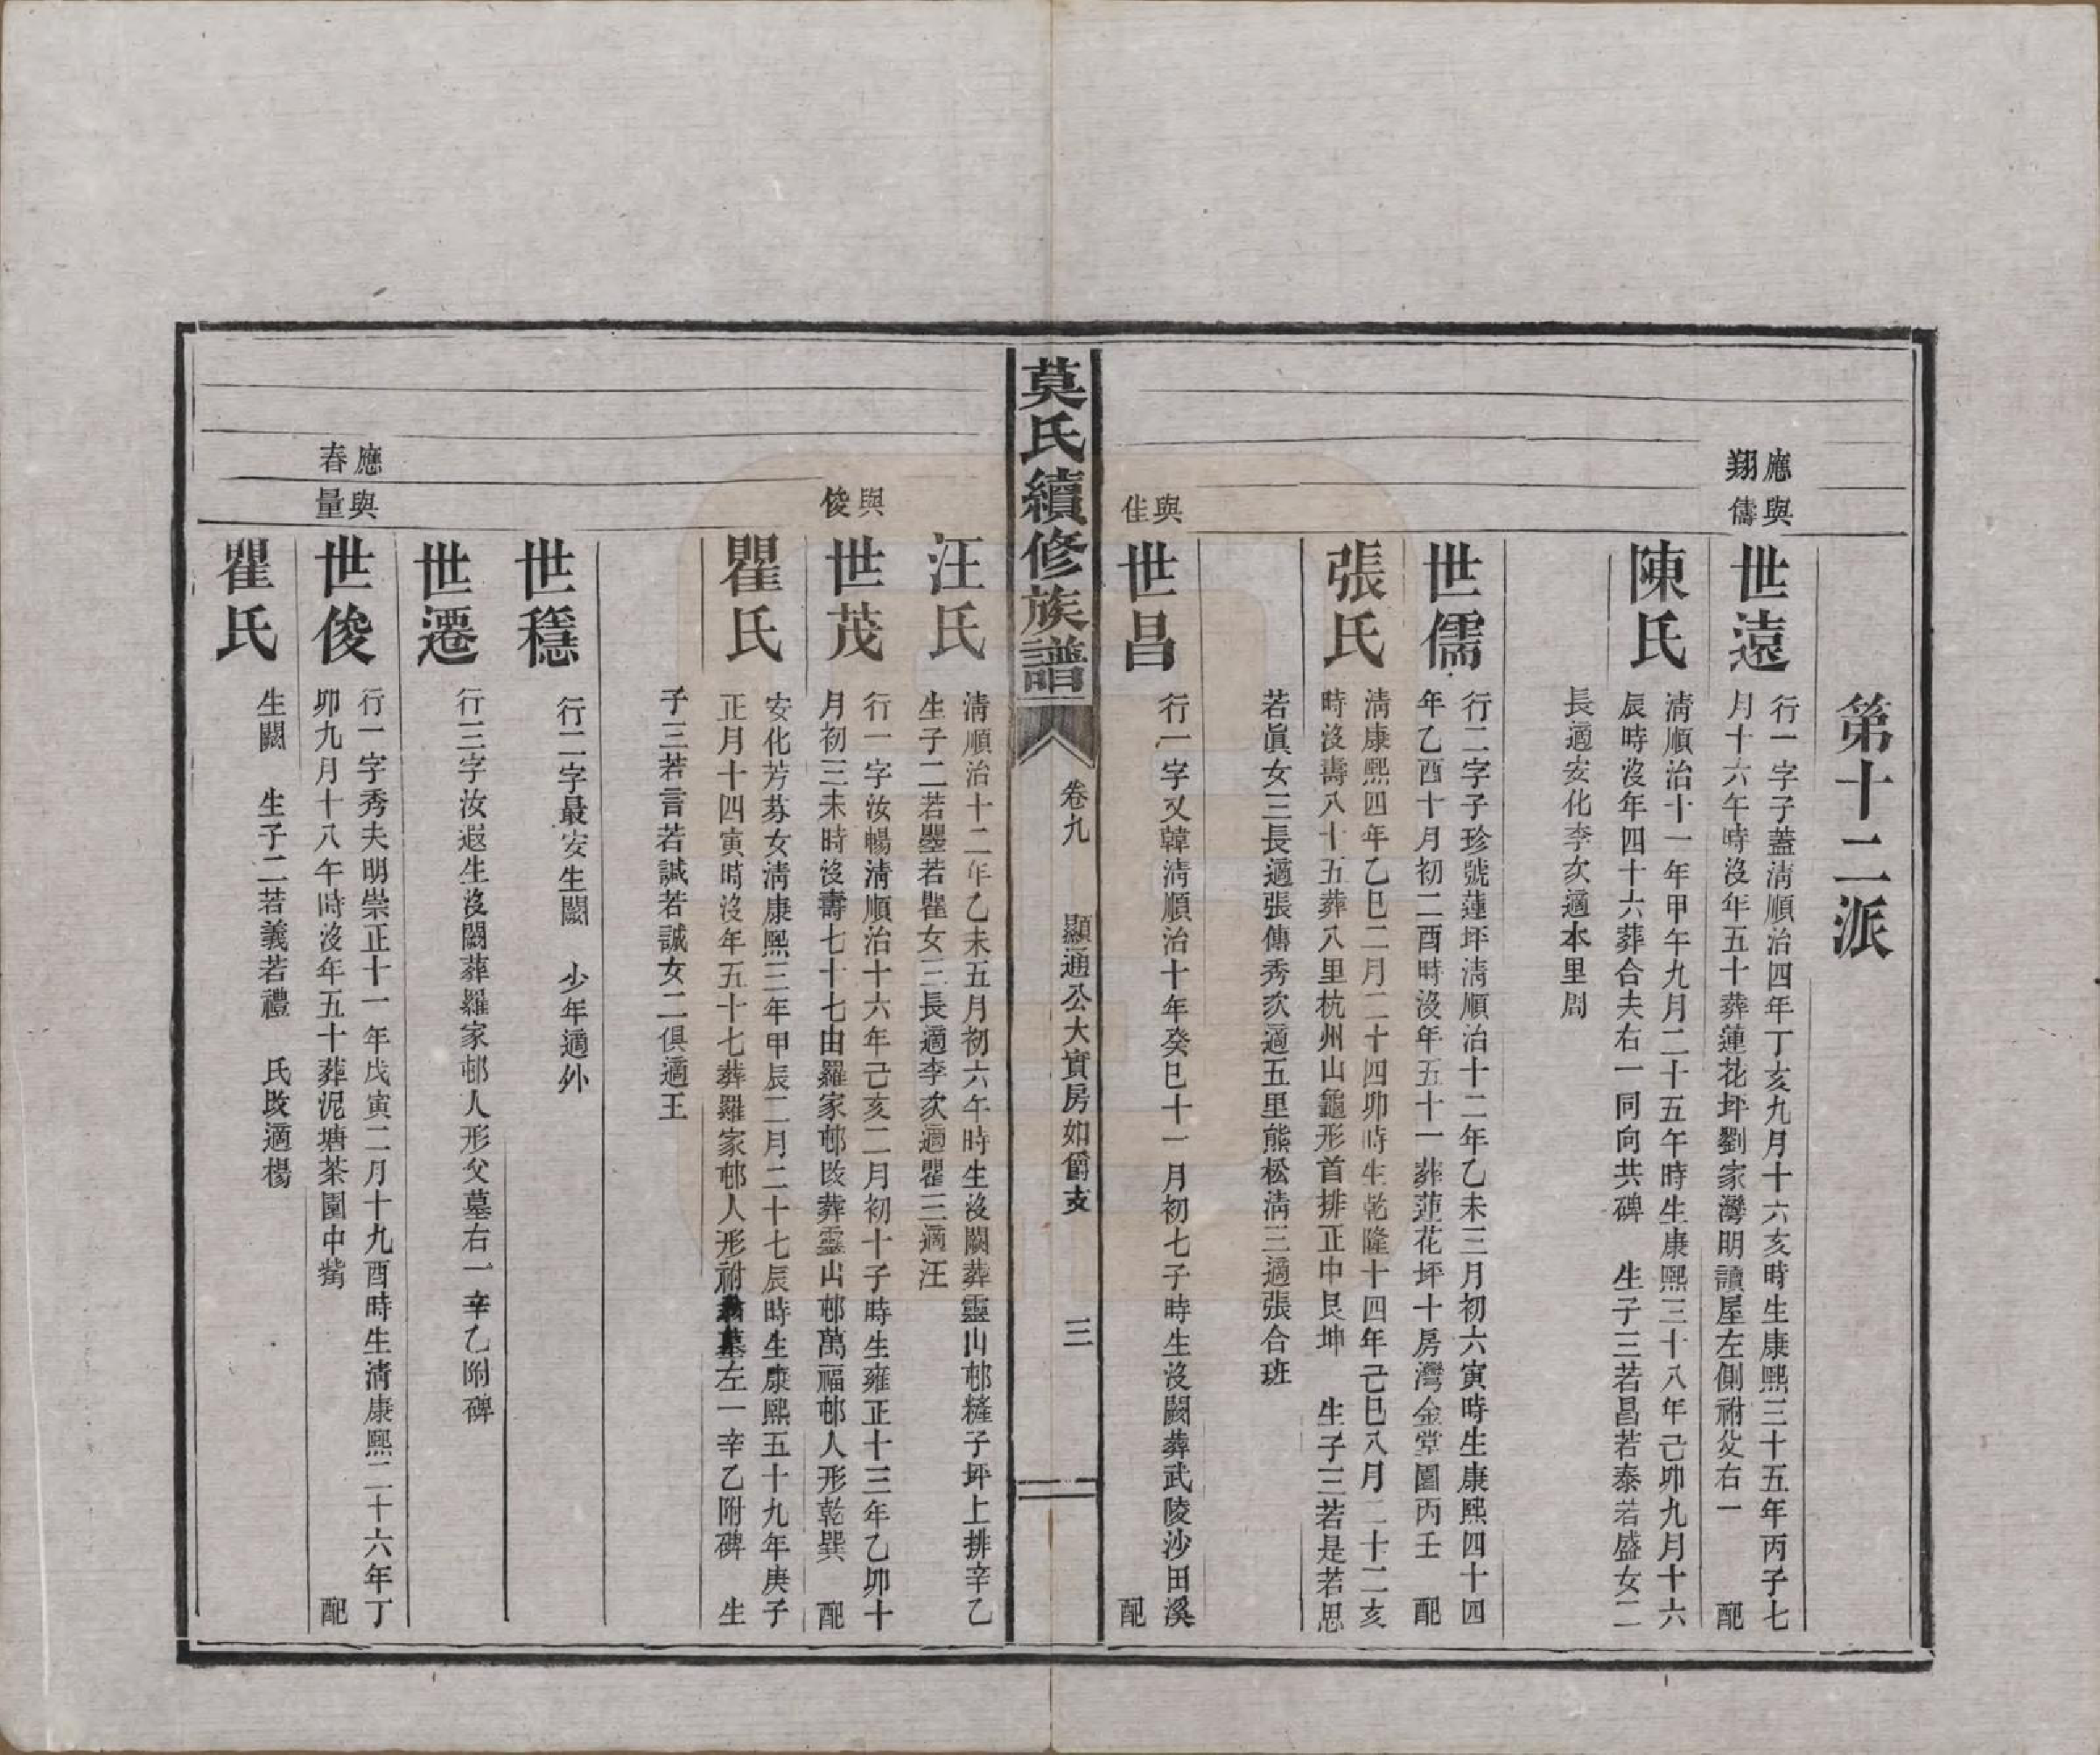 第十二派
應翔
與儔
世遠
行一字子蓋淸順治四年丁亥九月十六亥時生康熙三十五年丙子七
月十六午時沒年五十葬蓮花坪劉家灣明讀屋左側祔父右一　配
陳氏
淸順治十一年甲午九月二十五午時生康熙三十八年己卯九月十六
辰時沒年四十六葬合夫右一同向共碑　生子三若昌若泰若盛女二
長適安化李次適本里周
世儒
行二字子珍號蓮坪淸順治十二年乙未三月初六寅時生康熙四十四
年乙酉十月初二酉時沒年五十一葬蓮花坪十房灣金堂園丙壬　配
張氏
淸康熙四年乙巳二月二十四卯時生乾隆十四年己巳八月二十二亥
時沒壽八十五葬八里杭州山龜形首排正中艮坤　生子三若是若思
若眞女三長適張傳秀次適五里熊松淸三適張合班
與佳
世昌
行一字又韓淸順治十年癸巳十一月初七子時生沒闕葬武陵沙田溪
配
莫氏續修族譜
卷九
顯通公大實房如爵支
三
汪氏
淸順治十二年乙未五月初六午時生沒闕葬靈山邨糍子坪上排辛乙
生子二若璺若瞿女三長適李次適瞿三適汪
與俊
世茂
行一字汝暢淸順治十六年己亥二月初十子時生雍正十三年乙卯十
月初三未時沒壽七十七由羅家邨改葬靈山邨萬福邨人形乾巽　配
瞿氏
安化芳芬女淸康熙三年甲辰二月二十七辰時生康熙五十九年庚子
正月十四寅時沒年五十七葬羅家邨人形祔翁墓左一辛乙附碑　生
子三若言若諴若誠女二俱適王
世穩
行二字最安生闕　少年適外
世遷
行三字汝遐生沒闕葬羅家邨人形父墓右一辛乙附碑
應春
與量
世俊
行一字秀夫明崇正十一年戊寅二月十九酉時生淸康熙二十六年丁
卯九月十八午時沒年五十葬泥塘茶園中嘴　配
瞿氏
生闕　生子二若義若禮　氏改適楊